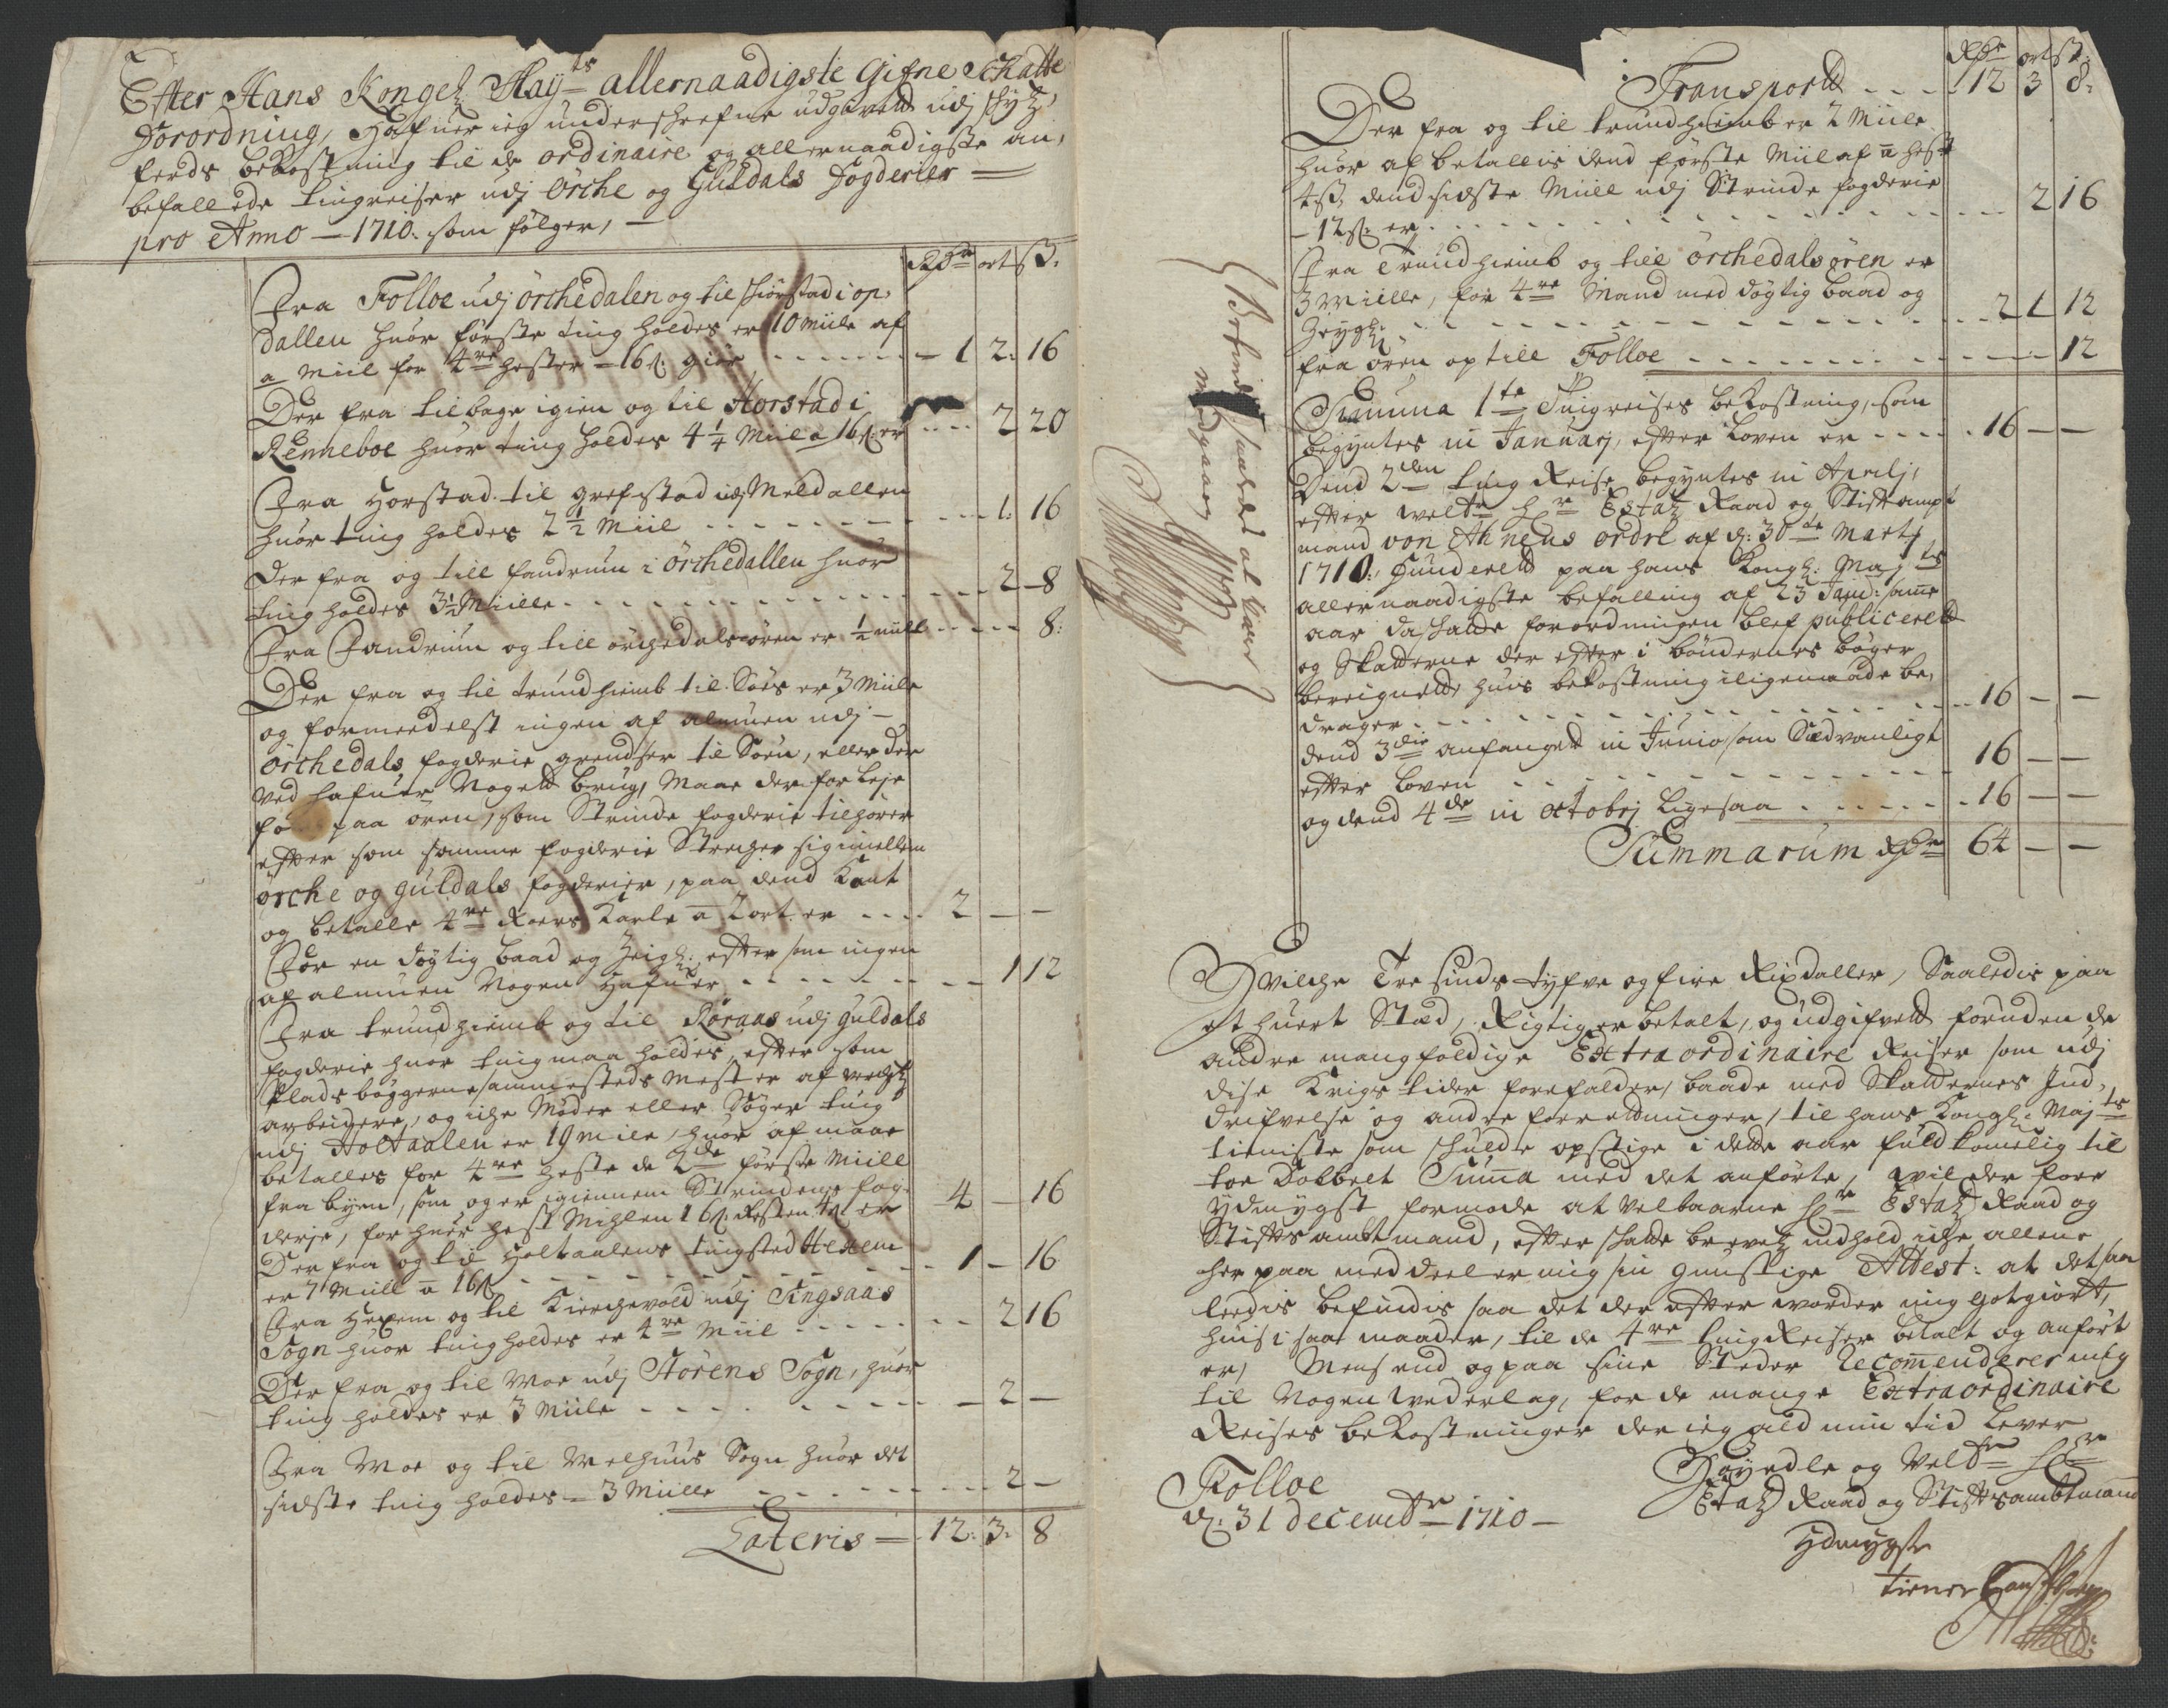 Efter Hans Kongel: May:ts allernaadigste Gifne Schatte
Forordning, Hafuer ieg underschrefne udgivett udj schyds
ferds bekostning til de ordinaire og allernaadigste an,
befallede tingreiser udj Örche og Guldals Fogderier
pro Anno 1710. som fölger,
Rdr ort ß.
Fra Folloe udj örchedalen og til i op,
dallen huor förste ting holdes er 10 miile af
a miil for 4re hester - 16 ß. giör - 1 2 16
Der fra tilbage igien og til Horstad i
Renneboe huor ting holdes 4 1/4 Miil a 16 ß. er 2 20
Fra Horstad til grefstad udj Meldallen
huor ting holdes 2 1/2 Miil 1 16
der fra og till fandrum i Örchedallen huor
ting holdes 3 1/2 Miille 2 - 8
Fra Fandrum og till örchedalsören er 1/2 miill 8
Der fra og til trundhiemb til Söes er 3 Miile
og formedelst ingen af almuen udj
örchedals fogderie grendser til Söen, eller der
ved hafuer Nogett brug, Maae derfor leje
paa ören, som Strinde fogderie tilhörer
efter som samme fogderie Strecher sig imellem
örche og guldals fogderier, paa dend Kant
og betalle 4re Roers Karle a 2 ort er 2 - -
For en döygtig baad og Seigl: efter som ingen
af almuen Nogen hafuer 1 12
Fra trundhiemb og til Röraas udj Guldals
fogderie huor ting maa holdes, efter som
Plads böggerne sammesteds mest er af
arbeidere, og iche Möder eller Söger ting
udj Holtaalen er 19 mile, huor af maae
betalles for 4re heste de 2de förste Miill
fra byen, som og er igiennem Strindens fog-
derje, for huer hest Miihlen 16 ß. Resten 4 ß er 4 - 16
Der fra og til Holtaalens tingsted Hexem
er 7 Miill a 16 ß 1 - 16
Fra Hexem og til Kirchevold udj Singsaas
Sogn huor ting holdes er 4re Miil 2 16
Der fra og til Moe udj Störens Sogn, huor
ting holdes er 3 Miile 2 -
Fra Moe og til Melhuus Sogn huor det
sidste ting holdes 3 Miille 2 -
Lateris 12 3 8
Rdr ort ß
Transportt 12 3 8
Der fra og til trundhiemb er 2 Miile
huor af betallis dend förste Miil af a hest
4 ß, dend sidste Miill udj Strinde fogderie
- 12 ß. er 2 16
Fra Trundhiemb og till örchedalsören er
3 Miille, for 4re Mand med döygtig baad og
Seygl: 2 1 12
fra ören op till Folloe 12
Summa 1te Tingreises bekostning, som
begyntes in Januarj, efter Loven er 16 - -
Dend 2den ting Reise begyntes in Aprilj,
efter Welb: Hr Estatz Raad og Stiftampt
mand von Ahnens ordre af d: 30te Martj
1710. Funderett paa hans Kongl: May:ts
allernaadigste befalling af 23 Janu: samme
aar da skatte forordningen blef publicerett
og Skatterne der efter i böndernes böger
bereignett, huis bekostning iligemaade be,
drager 16 - -
dend 3die anfanget in Junio som Sedvanligt
efter Loven 16 - -
og dend 4de in octobrj ligesaa 16 - -
Summarum Rdr 64 - -
Befindes saaledes at være
medgaaen
Hvilche Tresindstyfve og fire Rixdaller, Saaledis paa
et huert Stæd, Rigtig er betalt, og udgifvett foruden de
andre mangfoldige Extra ordinaire Reiser som udj
dise Krigs tider forefalder, baade med Skatternes Ind,
drifvelse og andre forretninger, til hans Kongl: Maj:ts
tieniste som skulde opstige i dette aar fuldkomelig til
toe Dobbelt Suma med det anförte, vil der fore
ydmygst formode at velbaarne Hr Estatz Raad og
Stiftsambtmand, efter skatte brevetz indhold iche allene
her paa meddeeler mig sin gunstige Attest: at det saa
ledis befindis saa det der efter worder mig gotgiort,
huis i saa maader, til de 4re ting Reiser betalt og anfört
er, Mens end og paa sine Steder Recomenderer mig
til Nogen wederlag, for de mange Extra ordinaire
Reises bekostninger der ieg ald min tid lever
Folloe
d: 31 decembr 1710
Höyædle og Velb: Hr
Etatz Raad og Stiftsambtmand
ydmygste
tiener